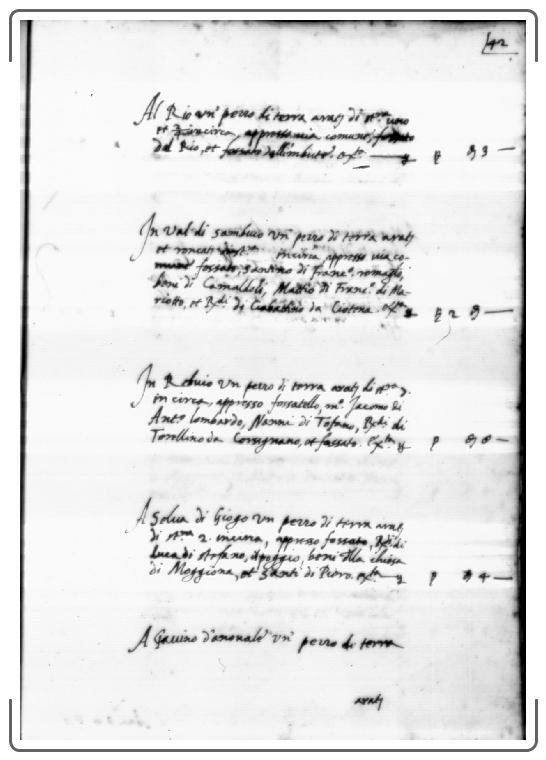 42
Al Rio un' pezzo di terra arat. di st.ra uno
et incirca, appresso via comune, fossato
del Rio, et fossato dell'imbuto. ext.o
In Val di sambuco un' pezzo di terra arat.
et roncat. incirca, appresso via co-
mune fossato, santino di Franc.o romagn.
beni di Camaldoli, Mattio di Franc.o di Ma-
riotto, et Rx.di di Ciabattino da Ciotena. ext.o 2
In un pezzo di terra arat. di
in circa, appresso fossatello, m.o Jacomo di
Ant.o lombardo, Nanni di Tofano, Rx.di di
Torellino da Corsignano, et fossato. ext.o 8
A Selva di Giogo un pezzo di terra arat.
di st.ra 2. incirca, appresso fossato, Rx.di di
Luca di stefano, il poggio, beni della chiesa
di Moggiona, et santi di Piero. ext.o 4
A Gavino d'anonale un' pezzo di terra
arat.